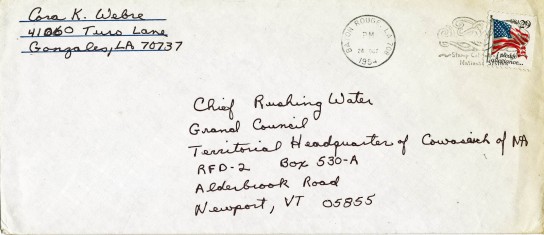 Cora K. Webre
41060 Turo Lane
Gonzales, LA 70737
BATON ROUGE, LA 708
PM
OCT
1994
29
USA
I pledge
allegiance...
Chief Rushing Water
Grand Council
Territorial Headquarter of Cowasuck of NA
RFD-2 Box 530-A
Alderbrook Road
Newport, VT 05855